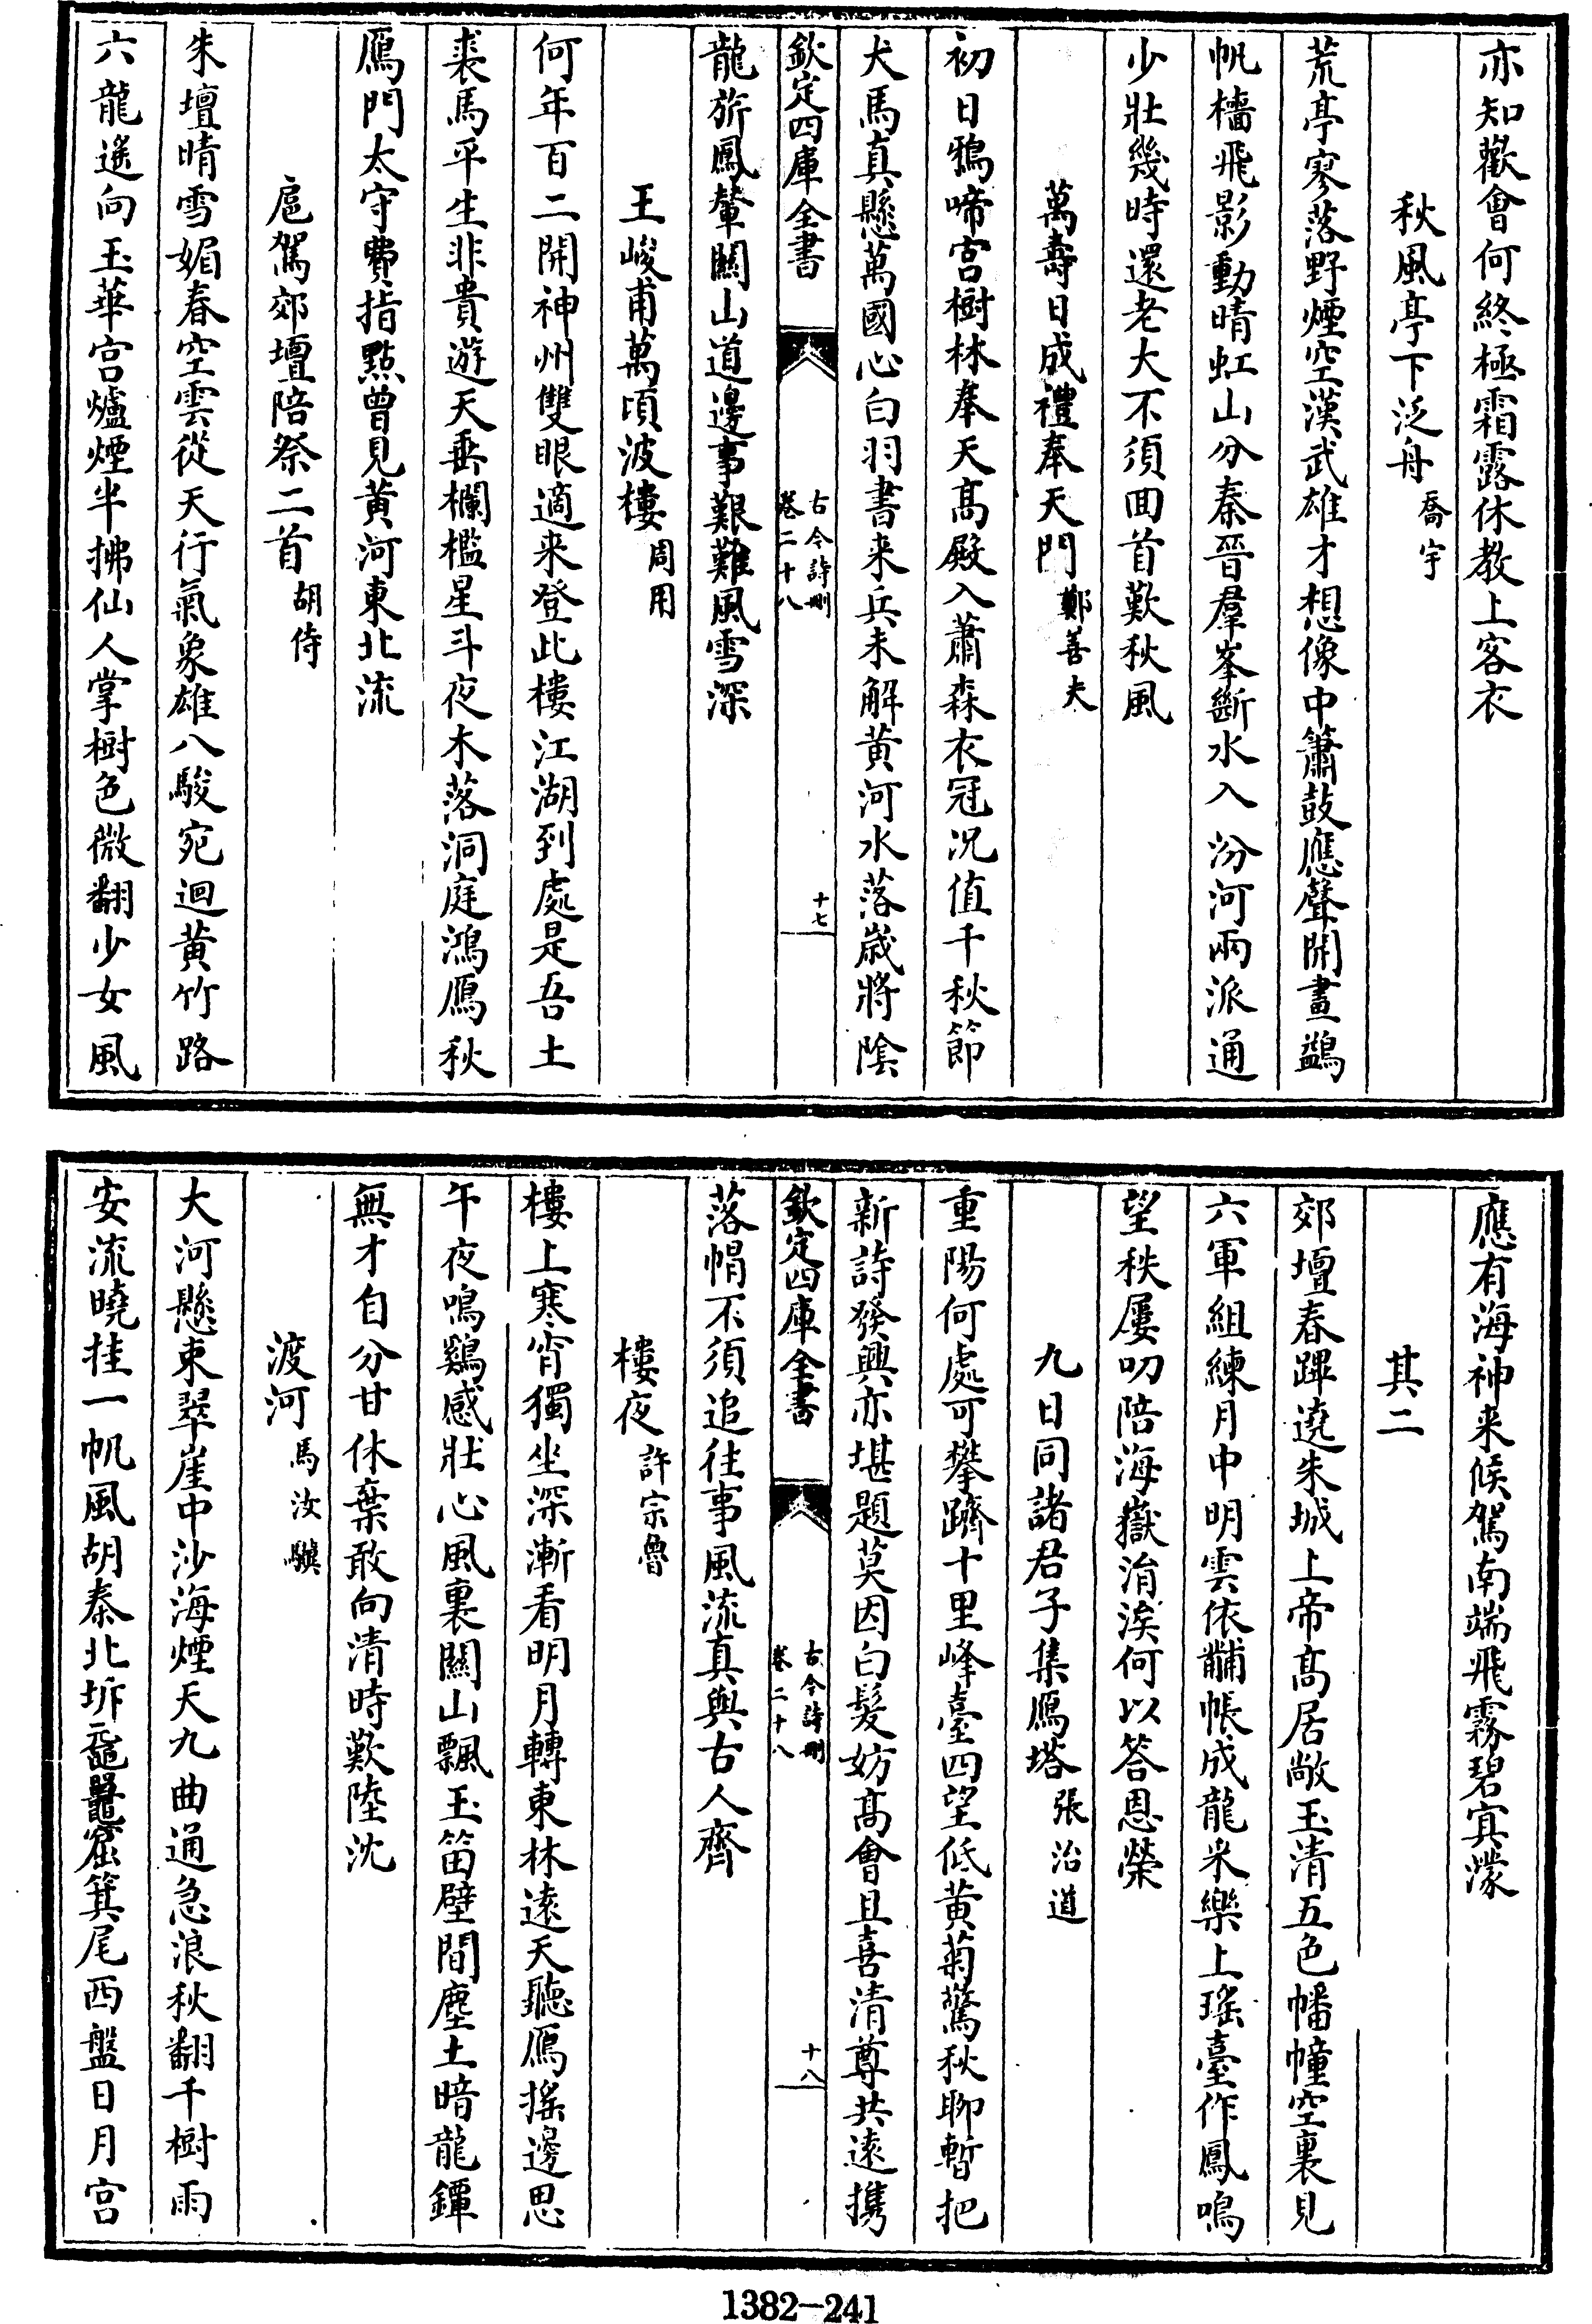 亦知歡會何終極霜露休教上客衣
秋風亭下泛舟 喬宇
荒亭寥落野煙空漢武雄才想像中簫鼓應聲開畫鷁
帆檣飛影動晴虹山分秦晉羣峯斷水入汾河兩派通
少壯幾時還老大不須回首歎秋風
萬壽日成禮奉天門 鄭善夫
初日鴉啼宮樹林奉天高殿入蕭森衣冠況值千秋節
犬馬真懸萬國心白羽書来兵未解黃河水落歲將陰
欽定四庫全書
古今詩刪
卷二十八
十七
龍旂鳳輦關山道邊事艱難風雪深
王峻甫萬頃波樓 周用
何年百二開神州雙眼適来登此樓江湖到處是吾土
裘馬平生非貴遊天垂欄檻星斗夜木落洞庭鴻鴈秋
鴈門太守費指點曾見黃河東北流
扈駕郊壇陪祭二首 胡侍
朱壇晴雪媚春空雲從天行氣象雄八駿宛迴黃竹路
六龍遙向玉華宮爐煙半拂仙人掌樹色微翻少女風
應有海神来候駕南端飛霧碧寘濛
其二
郊壇春蹕遶朱城上帝高居敞玉清五色幡幢空裏見
六軍組練月中明雲依黼帳成龍采樂上瑤臺作鳳鳴
望秩屢叨陪海嶽涓涘何以答恩榮
九日同諸君子集鴈塔 張治道
重陽何處可攀躋十里峰臺四望低黃菊驚秋聊暫把
新詩發興亦堪題莫因白髮妨高會且喜清尊共遠攜
欽定四庫全書
古今詩刪
卷二十八
十八
落帽不須追往事風流真與古人齊
樓夜 許宗魯
樓上寒宵獨坐深漸看明月轉東林遠天聽鴈搖邊思
午夜鳴鷄感壯心風裏關山飄玉笛壁間塵土暗龍鐔
無才自分甘休棄敢向清時歎陸沈
渡河 馬汝驥
大河懸束翠崖中沙海煙天九曲通急浪秋翻千樹雨
安流曉挂一帆風胡秦北坼黿鼉窟箕尾西盤日月宮
1382-241